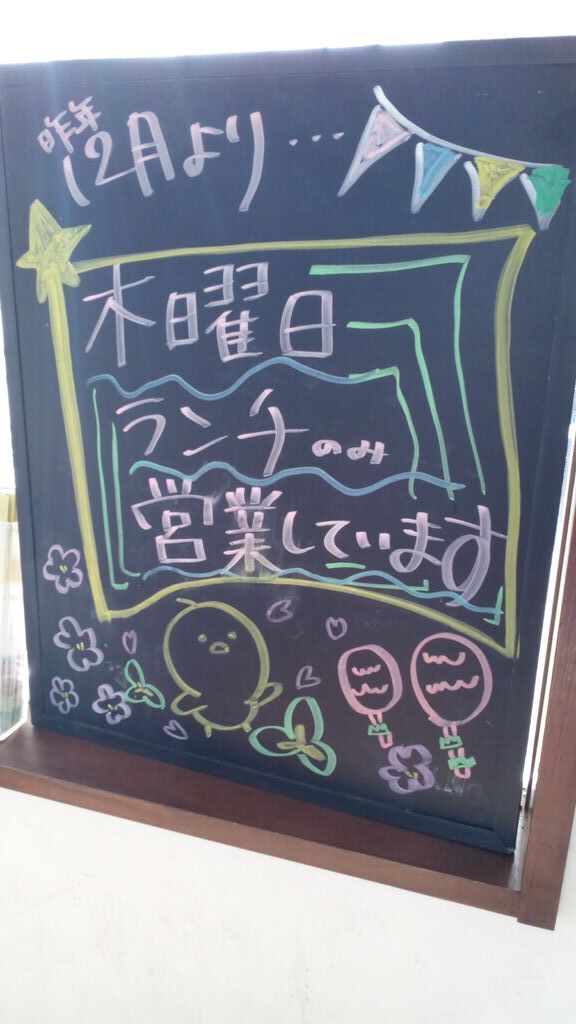 昨年
12月より...
木曜日
ランチのみ
営業しています